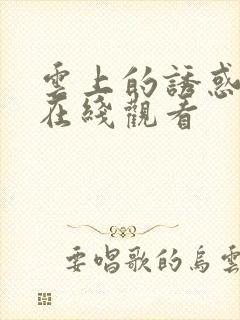 雲上的誘惑
在綫觀看
要唱歌的烏雲